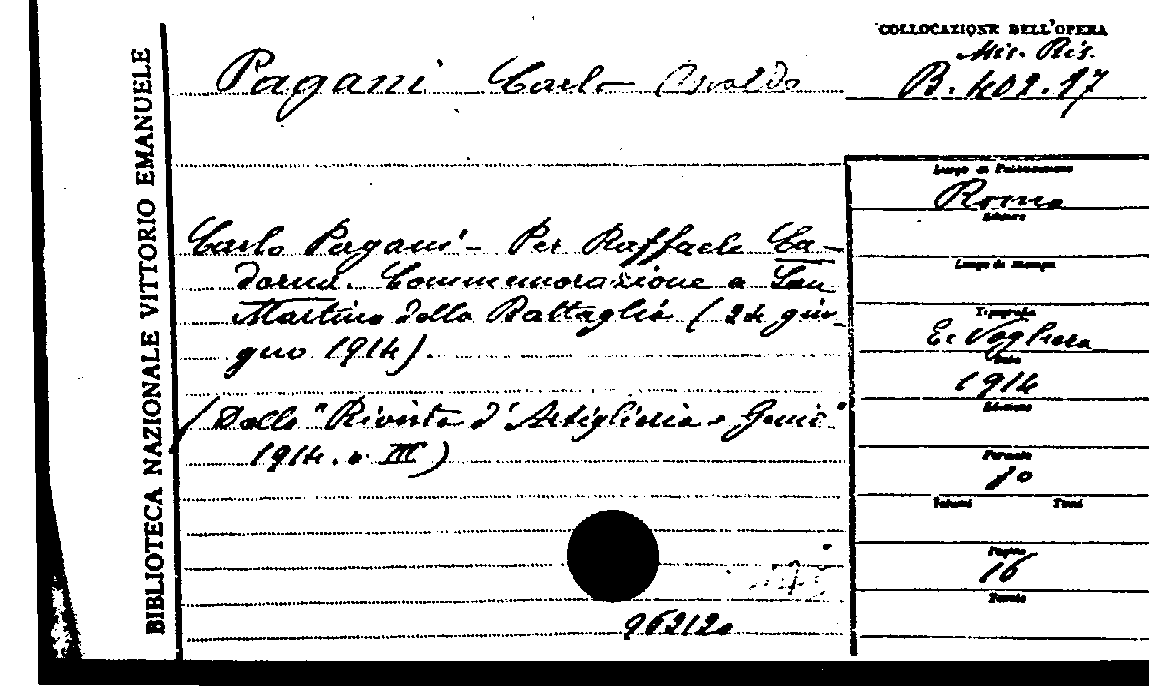 COLLOCAZIONE DELL'OPERA
Mis. Ris.
B. 402.17
Pagani Carlo Osvaldo
BIBLIOTECA NAZIONALE VITTORIO EMANUELE
Carlo Pagani - Per Raffaele Ca-
dorna. Commemorazione a San
Martino della Battaglia (24 giu-
gno 1914).
(Dalla "Rivista d'Artiglieria e Genio"
1914. v. III)
96212
Luogo di Pubblicazione
Roma
Editore
Luogo di stampa
Tipografia
E. Voghera
Data
1914
Edizione
Formato
8°
Volumi Tomi
Pagine
16
Tavole